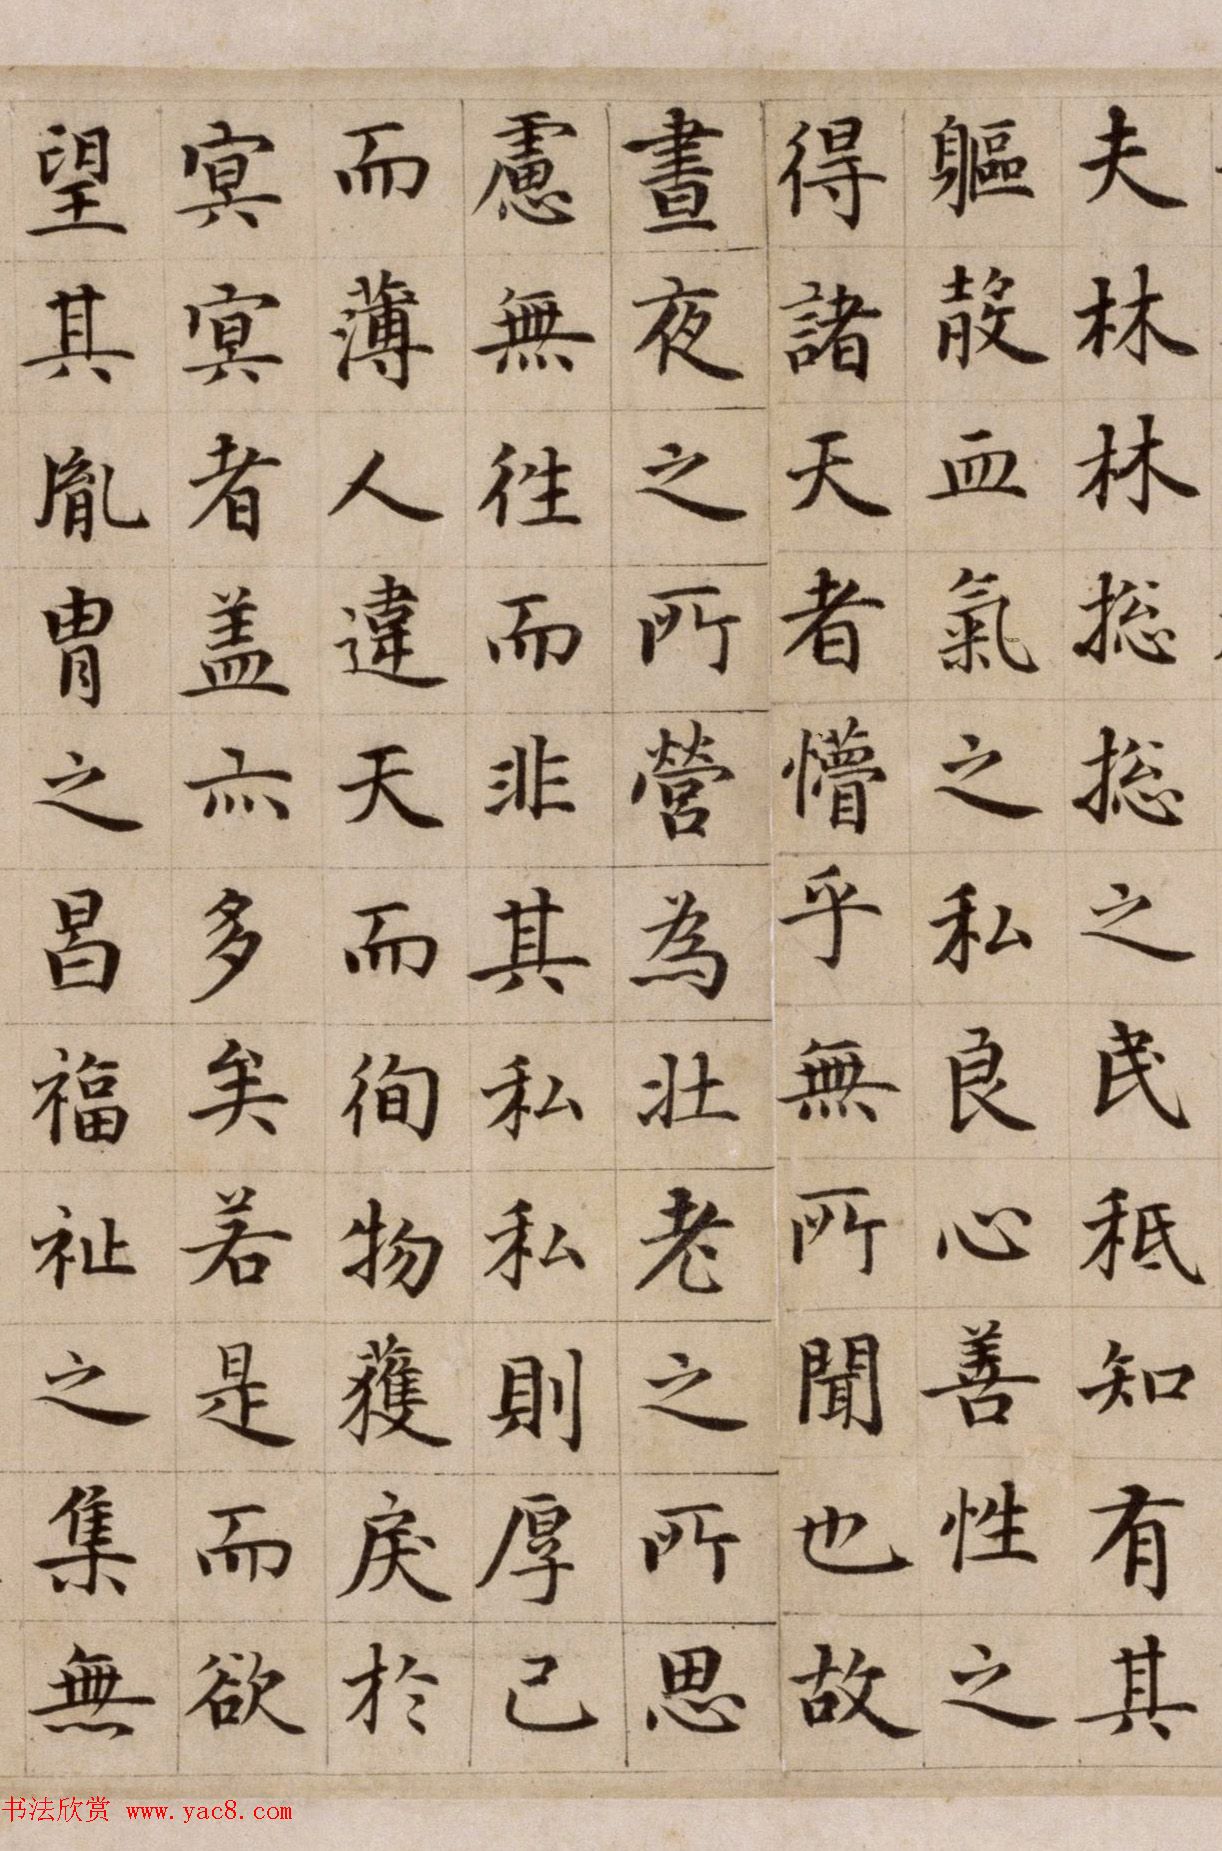 夫林林捴捴之民秪知有其
軀殽血氣之私良心善性之
得諸天者懵乎無所聞也故
晝夜之所營為壯老之所思
慮無往而非其私私則厚己
而薄人違天而徇物獲戾於
冥冥者盖亦多矣若是而欲
望其胤胄之昌福祉之集無
书法欣赏 www.yac8.com